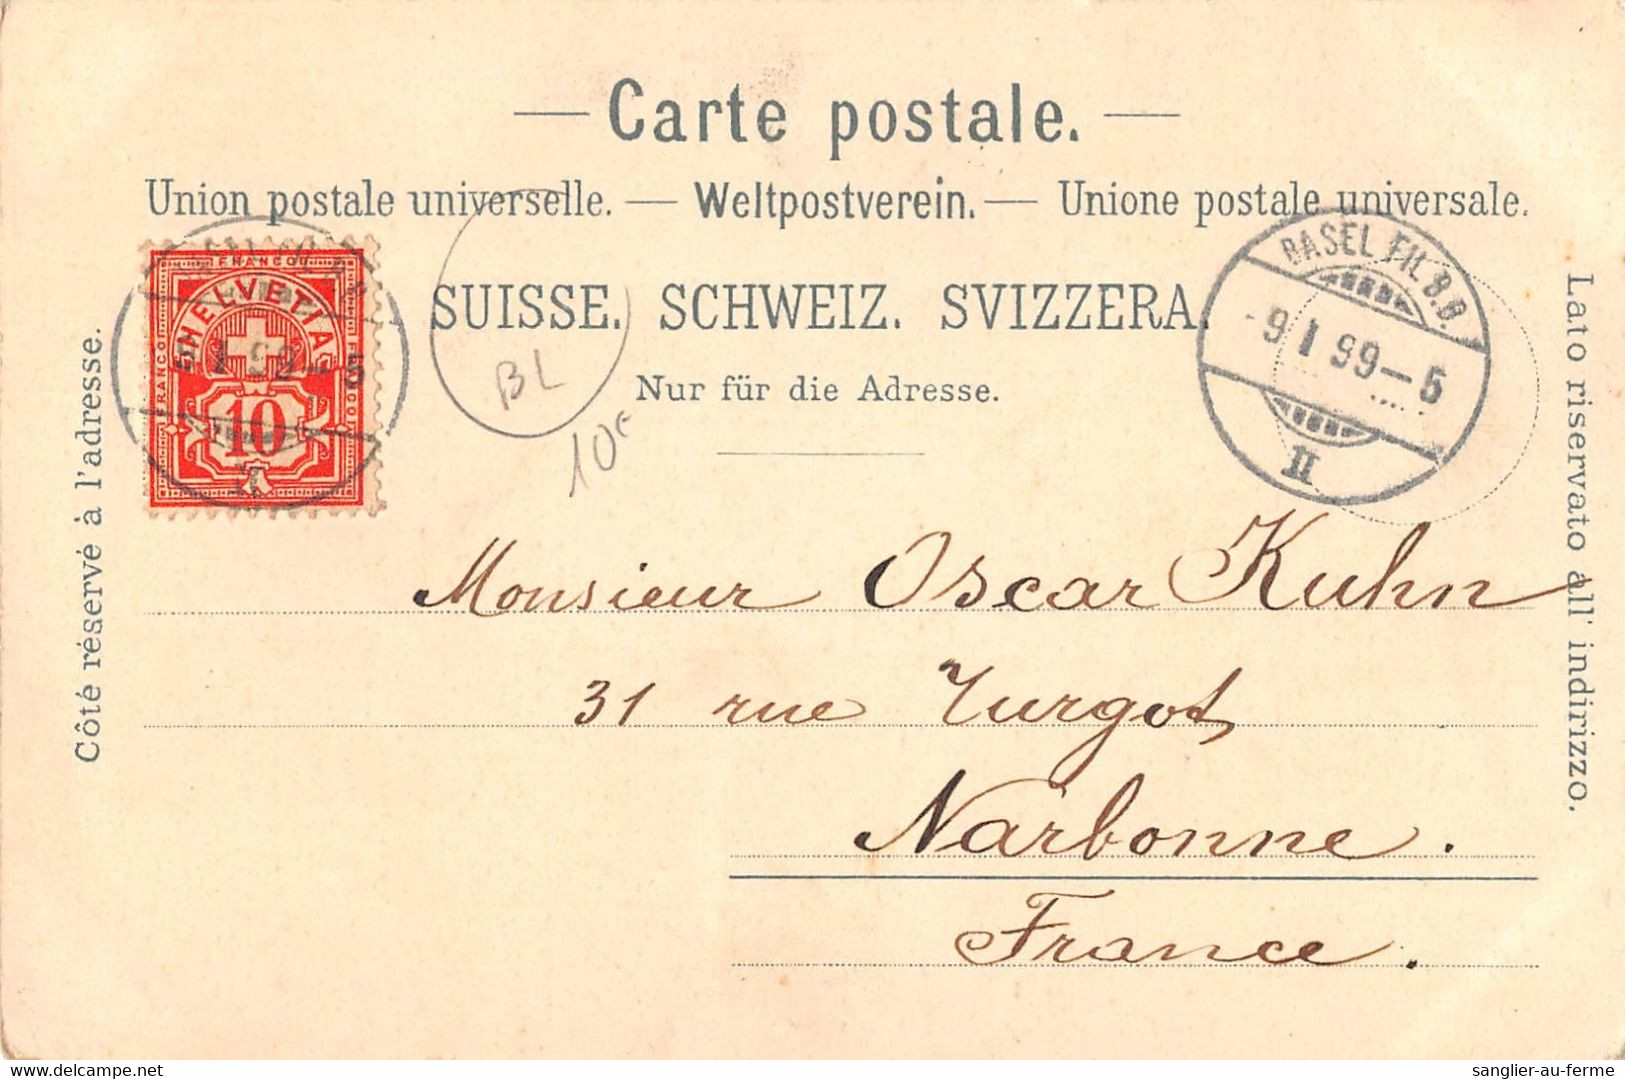 — Carte postale. —
Union postale universelle. — Weltpostverein. — Unione postale universale.
SUISSE. SCHWEIZ. SVIZZERA.
Nur für die Adresse.
Côté réservé à l'adresse.
Lato riservato all' indirizzo.
FRANCO
FRANCO
FRANCO
HELVETIA
10
I 99-5
BL
10€
BASEL FIL. B.B.
-9 I 99-5
II
Monsieur Oscar Kuhn
31 rue Turgot
Narbonne.
France.
sanglier-au-ferme
delcampe.net